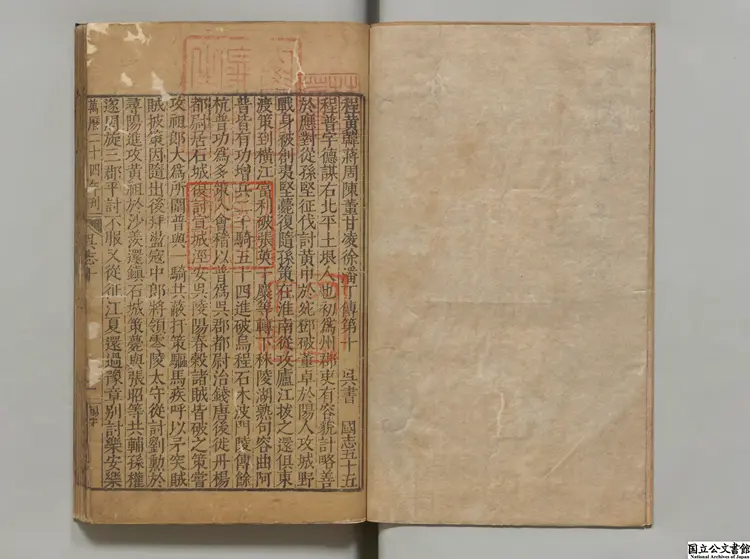 程黃韓蔣周陳董甘凌徐潘丁傳第十 吳書 國志五十五
程普字德謀右北平土垠人也初爲州郡吏有容貌計略善
於應對從孫堅征伐討黃巾於宛鄧破董卓於陽人攻城野
戰身被創夷堅薨復隨孫策在淮南從攻廬江拔之還俱東
渡策到橫江當利破張英于麋等轉下秣陵湖熟句容曲阿
普皆有功增兵二千騎五十匹進破烏程石木波門陵傳餘
杭普功爲多策入會稽以普爲吳郡都尉治錢唐後徙丹楊
都尉居石城復討宣城涇安吳陵陽春穀諸賊皆破之策嘗
攻祖郎大爲所圍普與一騎共蔽扞策驅馬疾呼以矛突賊
賊披策因隨出後拜盪寇中郎將領零陵太守從討劉勳於
尋陽進攻黃祖於沙羨還鎮石城策薨與張昭等共輔孫權
遂周旋三郡平討不服又從征江夏還過豫章別討樂安樂
萬曆二十四年刊 吳志十
国立公文書館
National Archives of Japan